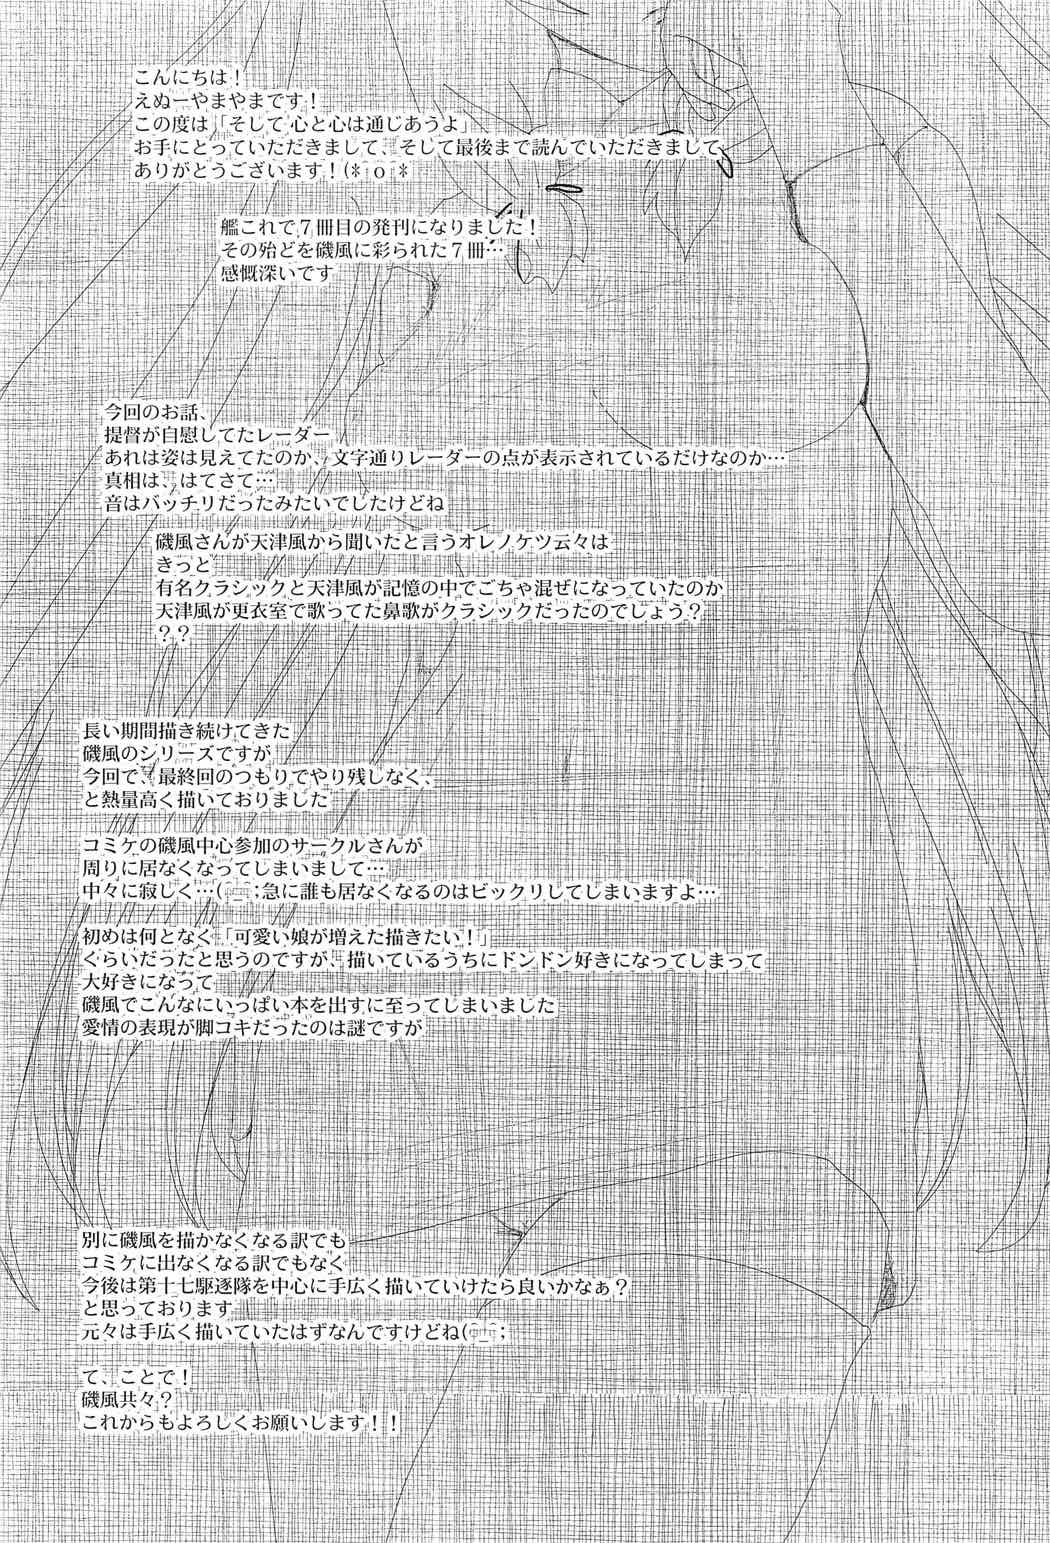 こんにちは！
えぬーやまやまです！
この度は「そして 心と心は通じあうよ」
お手にとっていただきまして、そして最後まで読んでいただきまして
ありがとうございます！(* o *
艦これで７冊目の発刊になりました！
その殆どを磯風に彩られた７冊…
感慨深いです
今回のお話、
提督が自慰してたレーダー
あれは姿は見えてたのか、文字通りレーダーの点が表示されているだけなのか…
真相は、はてさて…
音はバッチリだったみたいでしたけどね
磯風さんが天津風から聞いたと言うオレノケツ云々は
きっと
有名クラシックと天津風が記憶の中でごちゃ混ぜになっていたのか
天津風が更衣室で歌ってた鼻歌がクラシックだったのでしょう？
？？
長い期間描き続けてきた
磯風のシリーズですが
今回で、最終回のつもりでやり残しなく、
と熱量高く描いておりました
コミケの磯風中心参加のサークルさんが
周りに居なくなってしまいまして…
中々に寂しく…(^_^;急に誰も居なくなるのはビックリしてしまいますよ…
初めは何となく「可愛い娘が増えた描きたい！」
くらいだったと思うのですが、描いているうちにドンドン好きになってしまって
大好きになって
磯風でこんなにいっぱい本を出すに至ってしまいました
愛情の表現が脚コキだったのは謎ですが
別に磯風を描かなくなる訳でも
コミケに出なくなる訳でもなく
今後は第十七駆逐隊を中心に手広く描いていけたら良いかなぁ？
と思っております
元々は手広く描いていたはずなんですけどね(^_^;
て、ことで！
磯風共々？
これからもよろしくお願いします！！